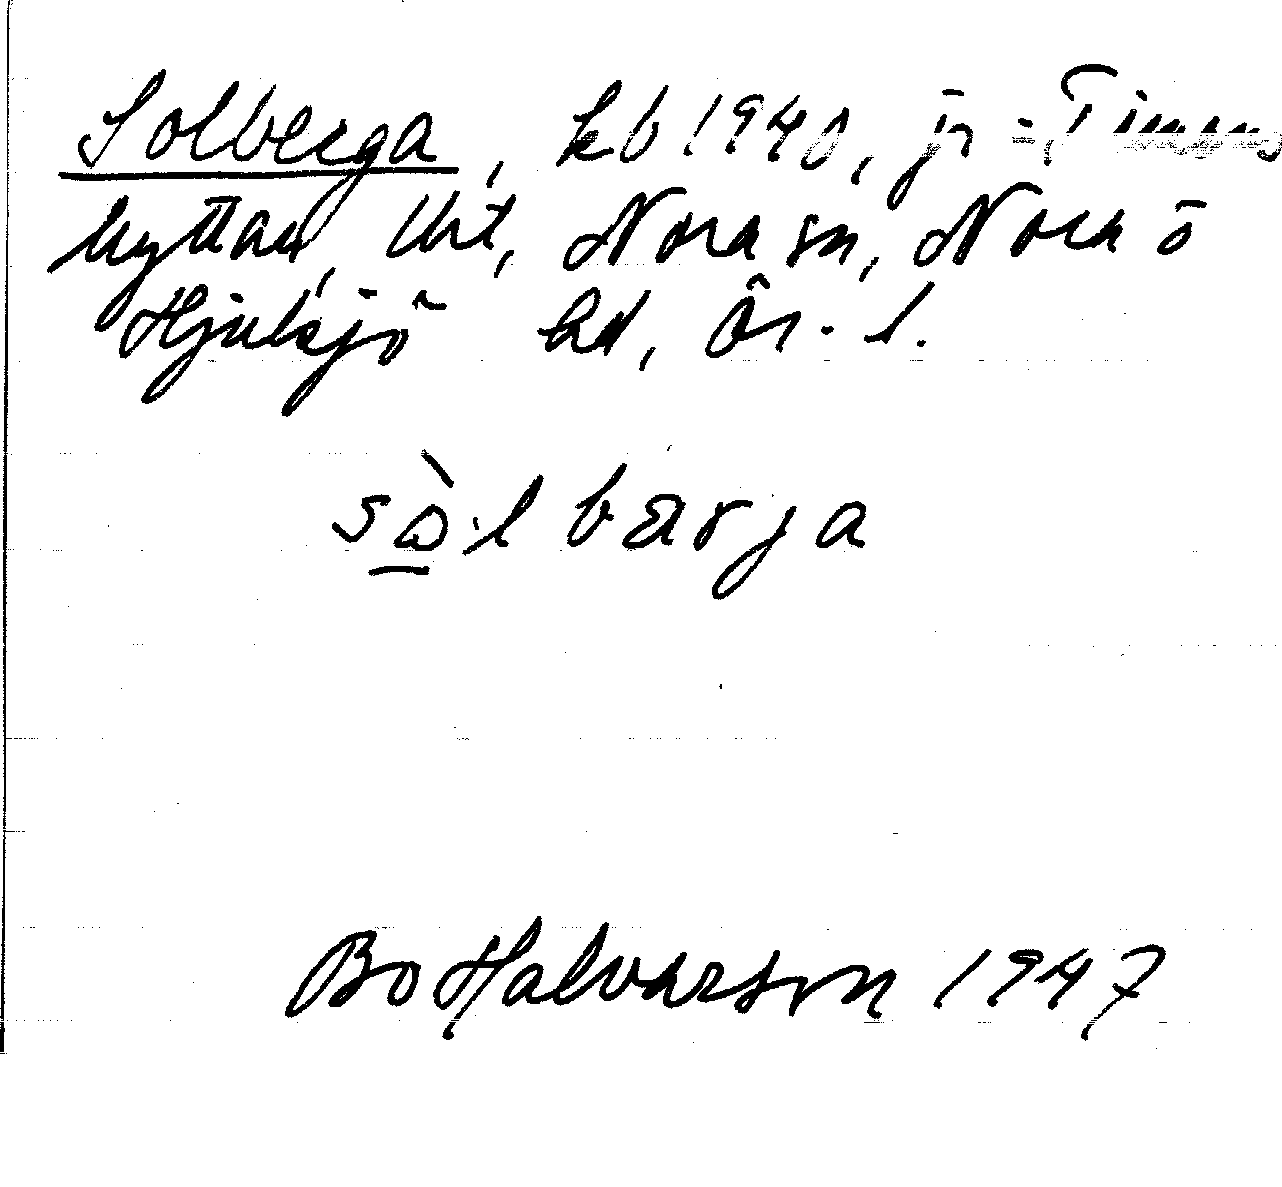 Solberga, kb 1940, jr = Timans
hyttan, Urt, Nora sn, Nora o
Hjulsjö hd, Ör. l.
sò̱lbærja
Bo Halvarson 1947